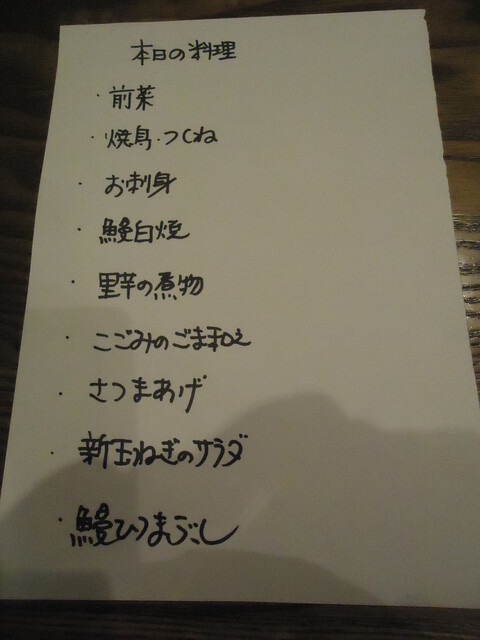 本日の料理
・前菜
・焼鳥・つくね
・お刺身
・鰻白焼
・里芋の煮物
・こごみのごま和え
・さつまあげ
・新玉ねぎのサラダ
・鰻ひつまぶし